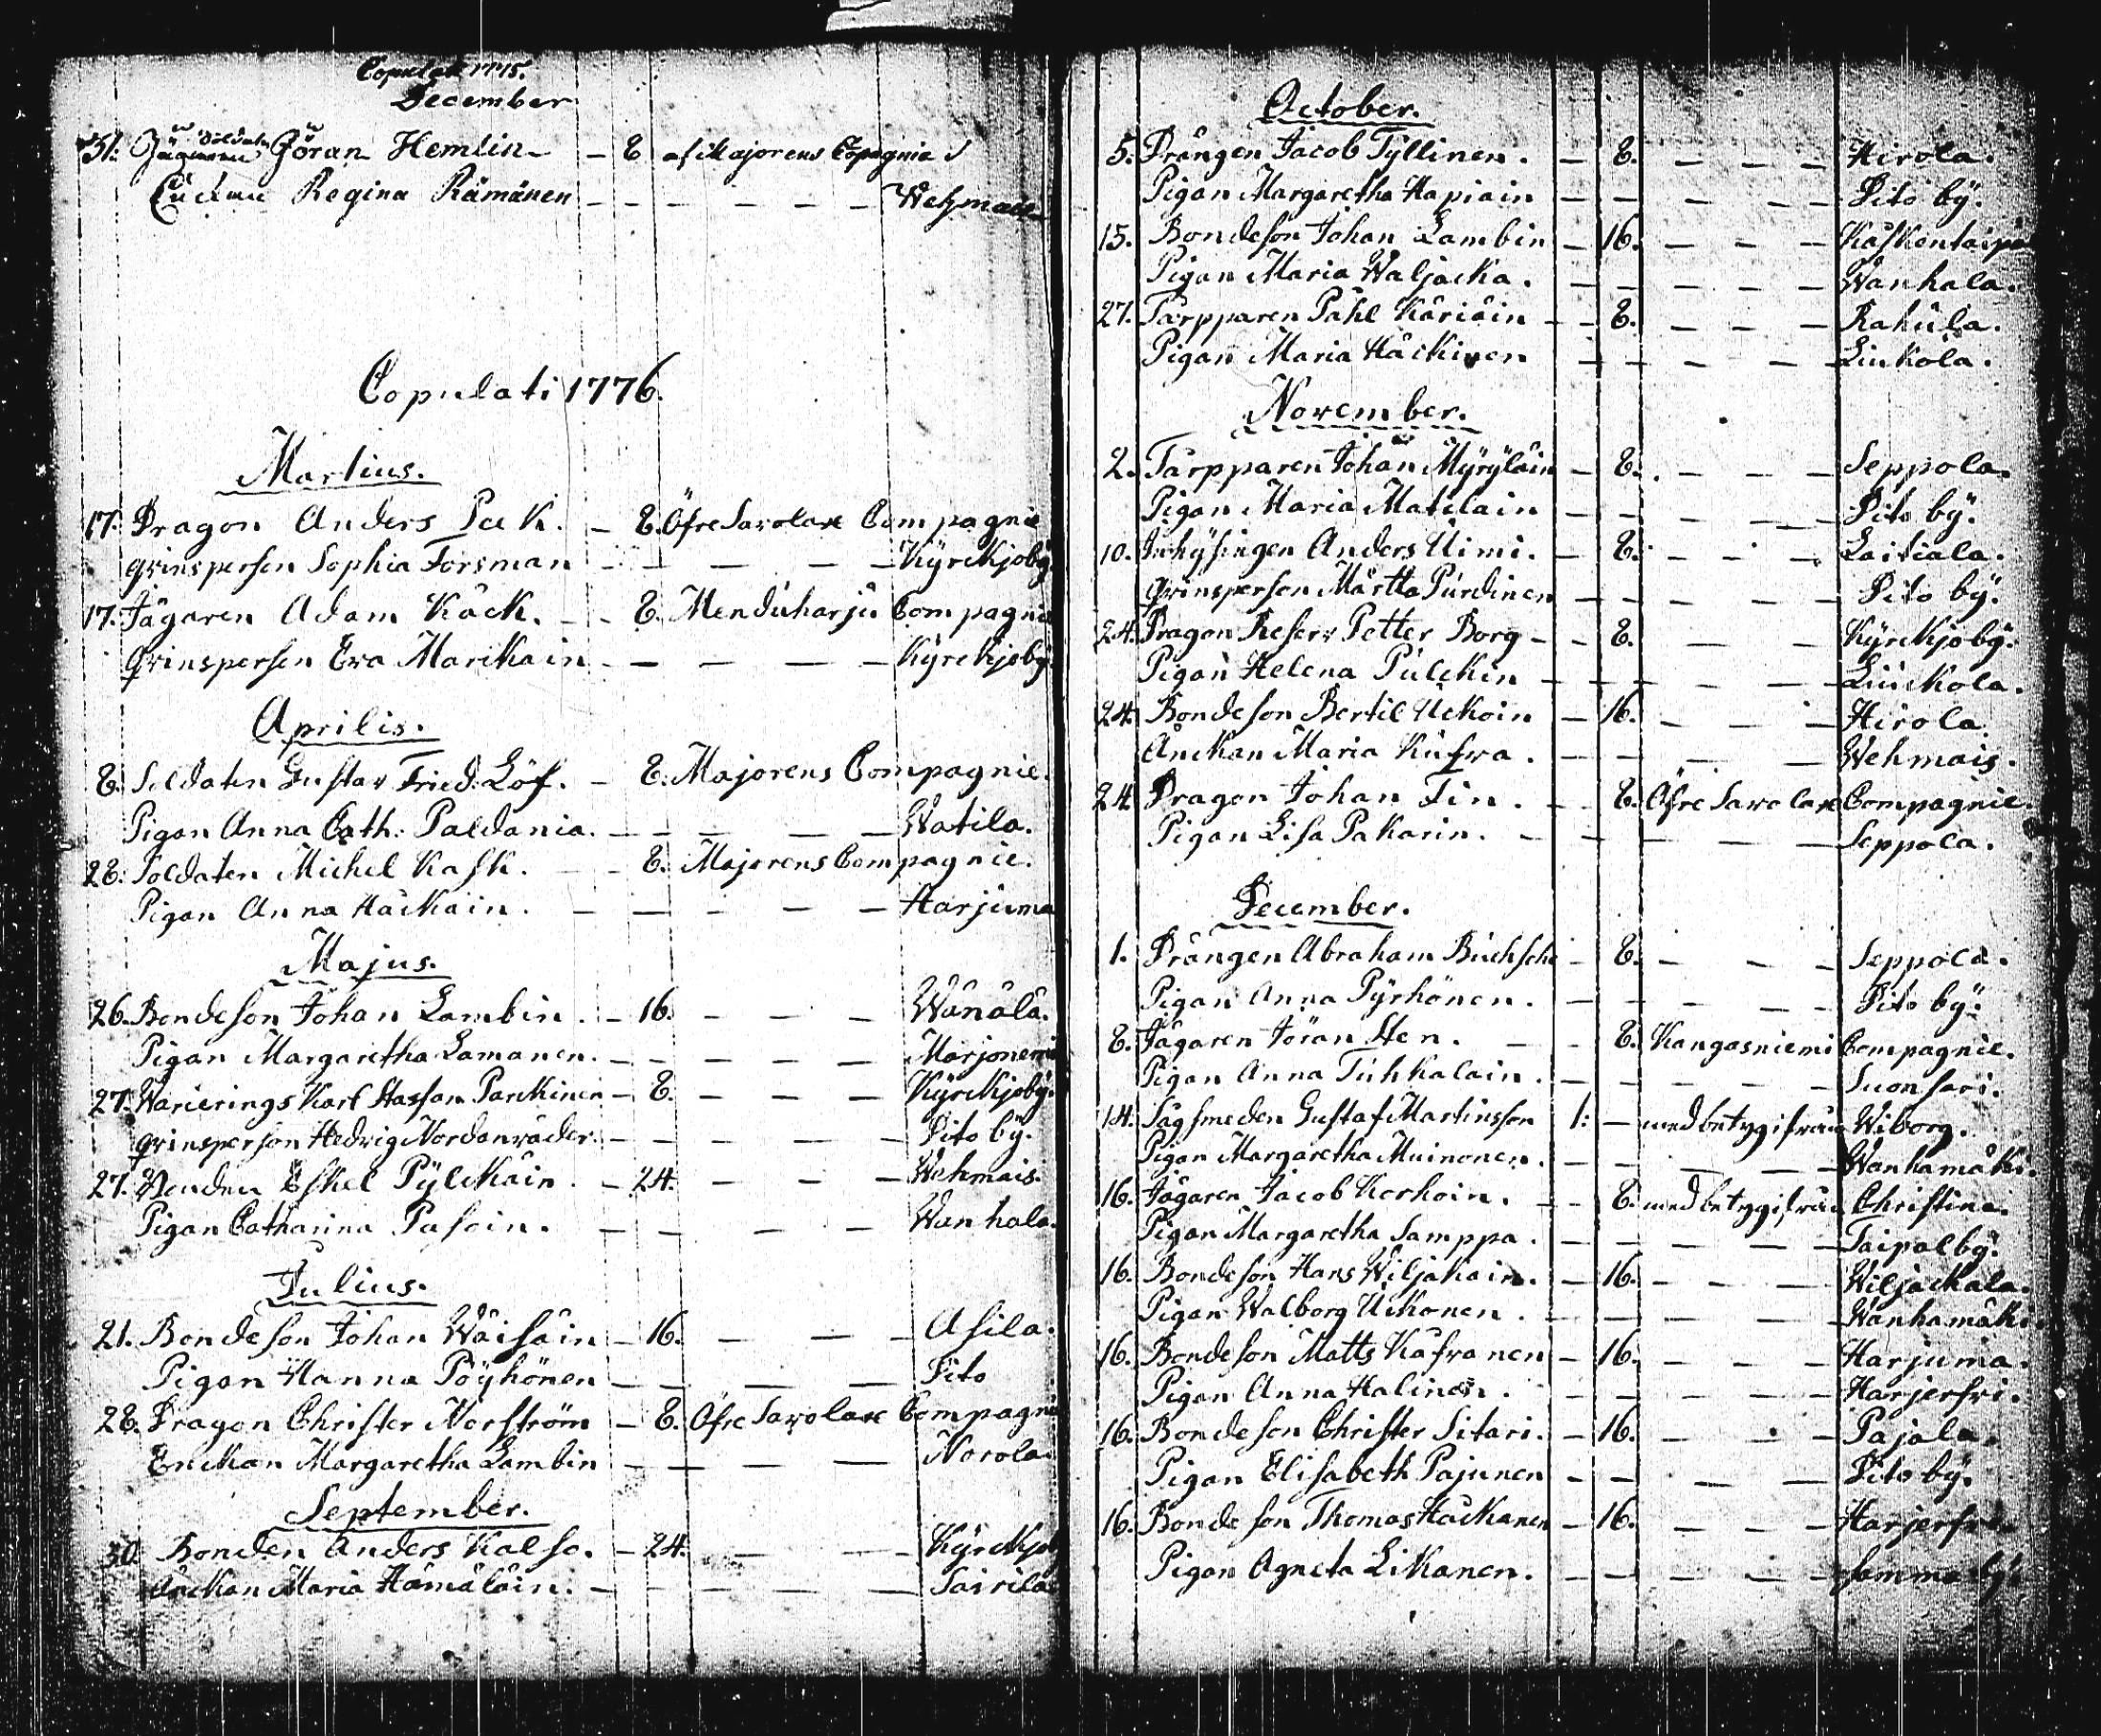 Copulati 1775.
December
31. Soldaten Jägaren Göran Hemlin — 8 af Majorens Copagnie
Enckan Regina Rämänen — — — — — Wehmais
Copulati 1776.
Martius.
17. Dragon Anders Pek. — 8. Öfre Savolax Compagnie
qvinsperson Sophia Forsman — — — — Kyrckjoby.
17. Jägaren Adam Käck. — 8. Menduharju Compagnie
qvinspersen Eva Marikain — — — — Kyrckjoby.
Aprilis.
8. Soldaten Gustav Fried: Löf. — 8. Majorens Compagnie.
Pigan Anna Cath: Paldania. — — — — Watila.
28. Soldaten Michel Kask. — 8. Majorens Compagnie.
Pigan Anna Häckäin. — — — — — Harjuma
Majus.
26. Bondeson Johan Lambin. — 16. — — — Wänälä.
Pigan Margaretha Lamanen. — — — — — Marjoniemi
27. Warierings Karl Staffan Parckinen — 8. — — — Kyrckjoby.
qvinsperson Hedvig Nordanväder. — — — — — Sito by.
27. Bonden Eskel Pylckäin. — 24. — — — Wehmais.
Pigan Catharina Pasoin. — — — — — Wanhala.
Julius.
21. Bondeson Johan Wäisäin — 16. — — — Asila.
Pigan Hanna Pöyhönen — — — — — Sito
28. Dragon Christer Norström — 8. Öfre Savolax Compagnie
Enckan Margaretha Lambin — — — — Norola.
September.
30. Bonden Anders Kalso. — 24. — — — Kyrckjob
Änckan Maria Hämäläin. — — — — — Sairila
October.
5. Drängen Jacob Tyllinen. — 8. — — — Hirola.
Pigan Margaretha Hapiain — — — — — Sito by.
15. Bondeson Johan Lambin — 16. — — — Käskentaipa
Pigan Maria Waljacka. — — — — — Wanhala.
27. Tårpparen Påhl Käriäin — 8. — — — Rahula.
Pigan Maria Häckinen — — — — — Liukola.
November.
2. Tårpparen Johan Myryläin — 8. — — — Seppola.
Pigan Maria Matilain — — — — — Sito by.
10. Inhysingen Anders Uimi. — 8. — — — Laitiala.
qvinsperson Märtta Purdinen — — — — — Sito by.
24. Dragon Reserv Petter Borg — 8. — — — Kyrckjoby.
Pigan Helena Pulckin — — — — — Liuckola.
24. Bondeson Bertil Uckoin — 16. — — — Hirola.
Änckan Maria Kufva. — — — — — Wehmais.
24. Dragon Johan Fin. — 8. Öfre Savolax Compagnie.
Pigan Lisa Pakarin. — — — — — Seppola.
December.
1. Drängen Abraham Buchscht — 8. — — — Seppola.
Pigan Anna Pyrhönen. — — — — — Sito by.
8. Jägaren Jöran Sten. — 8. Kangasniemi Compagnie.
Pigan Anna Tuhkalain. — — — — — Suonsari.
14. Sågsmeden Gustaf Martinsson 1: — med betyg ifrån Wiborg.
Pigan Margaretha Muinonen. — — — — — Wanhamäki.
16. Jägaren Jacob Korhoin. — 8. med betyg ifrån Christina.
Pigan Margaretha Samppa. — — — — — Taipalby.
16. Bondeson Hans Wiljakain. — 16. — — — Wiljackala.
Pigan Walborg Uckonen. — — — — — Wanhamäki.
16. Bondeson Matts Kåfranen — 16. — — — Harjuma.
Pigan Anna Halinen. — — — — — Harjerfvi.
16. Bondeson Christer Sitari. — 16. — — — Pajala.
Pigan Elisabeth Pajunen — — — — — Sito by.
16. Bondeson Thomas Häckänen — 16. — — — Harjerfvi
Pigan Agneta Likanen. — — — — —